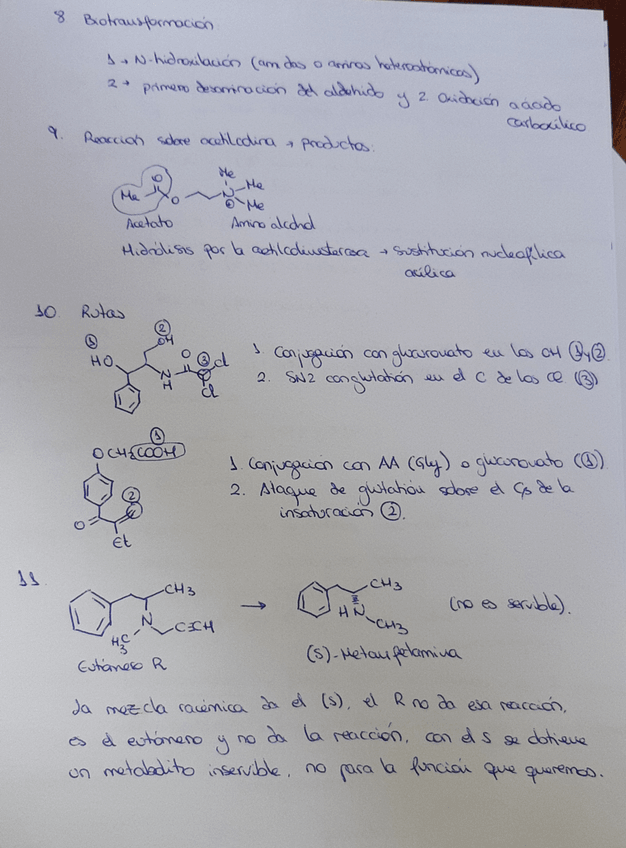 8 Biotransformación
1 → N-hidroxilación (amidas o aminas heteroatómicas)
2 → primero desaminación del aldehído y 2. Oxidación a ácido
carboxílico
9. Reacción sobre acetilcolina → productos:
Me
Me O O N Me
⊕ Me
Acetato Amino alcohol
Hidrólisis por la acetilcolinesterasa → Sustitución nucleofílica
acílica
10. Rutas
① ②
HO OH O ③ Cl
N
H Cl
1. Conjugación con glucuronato en los OH ① y ②.
2. SN2 con glutatión en el C de los Cl (③)
①
OCH2COOH
②
O
Et
1. Conjugación con AA (Gly) o glucuronato (①)
2. Ataque de glutatión sobre el Cβ de la
insaturación ②.
11.
CH3 → CH3
N C≡CH HN (no es servible).
H3C CH3
Eutómero R (S)-Metanfetamina
La mezcla racémica da el (S), el R no da esa reacción,
es el eutómero y no da la reacción, con el S se obtiene
un metabolito inservible, no para la función que queremos.